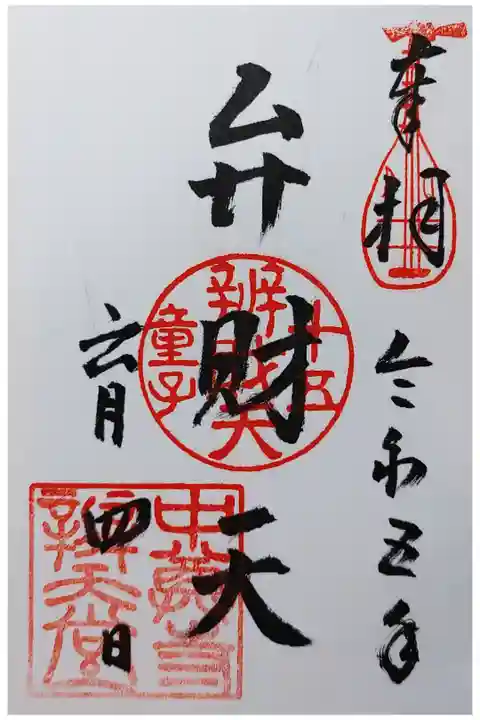 奉拝
令和五年
弁財天
六月
四日
十五
辨財天
童子
中尊寺
辨天堂